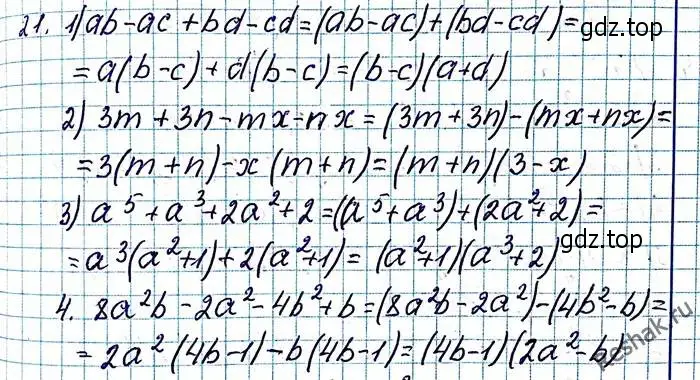 21. 1) ab - ac + bd - cd = (ab - ac) + (bd - cd) =
= a(b - c) + d(b - c) = (b - c)(a + d)
2) 3m + 3n - mx - nx = (3m + 3n) - (mx + nx) =
= 3(m + n) - x(m + n) = (m + n)(3 - x)
3) a⁵ + a³ + 2a² + 2 = (a⁵ + a³) + (2a² + 2) =
= a³(a² + 1) + 2(a² + 1) = (a² + 1)(a³ + 2)
4. 8a²b - 2a² - 4b² + b = (8a²b - 2a²) - (4b² - b) =
= 2a²(4b - 1) - b(4b - 1) = (4b - 1)(2a² - b)
gdz.top
gdz.top
gdz.top
reshak.ru